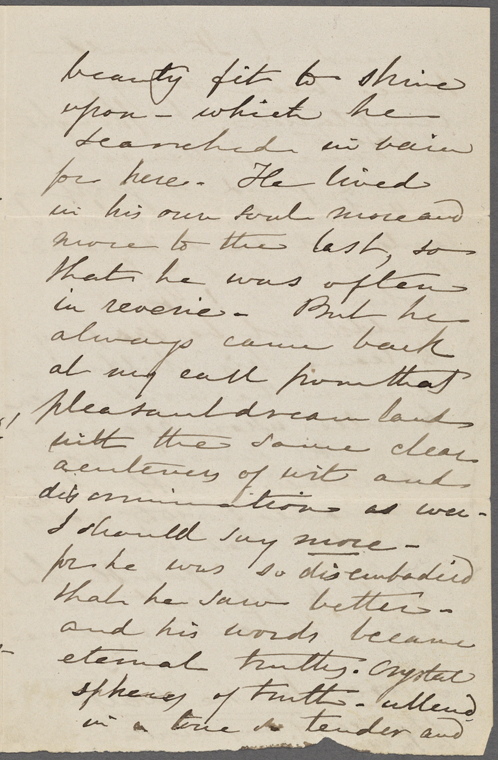 beauty fit to shine
upon - which he
searched in vain
for here. He lived
in his own soul more and
more to the last, so
that he was often
in reverie - But he
always came back
at my call from that
pleasant dream land
with the same clear
acuteness of wit and
discrimination as ever -
I should say more -
for he was so disembodied
that he saw better -
and his words became
eternal truths. Crystal
spheres of truth - uttered
in a tone so tender and